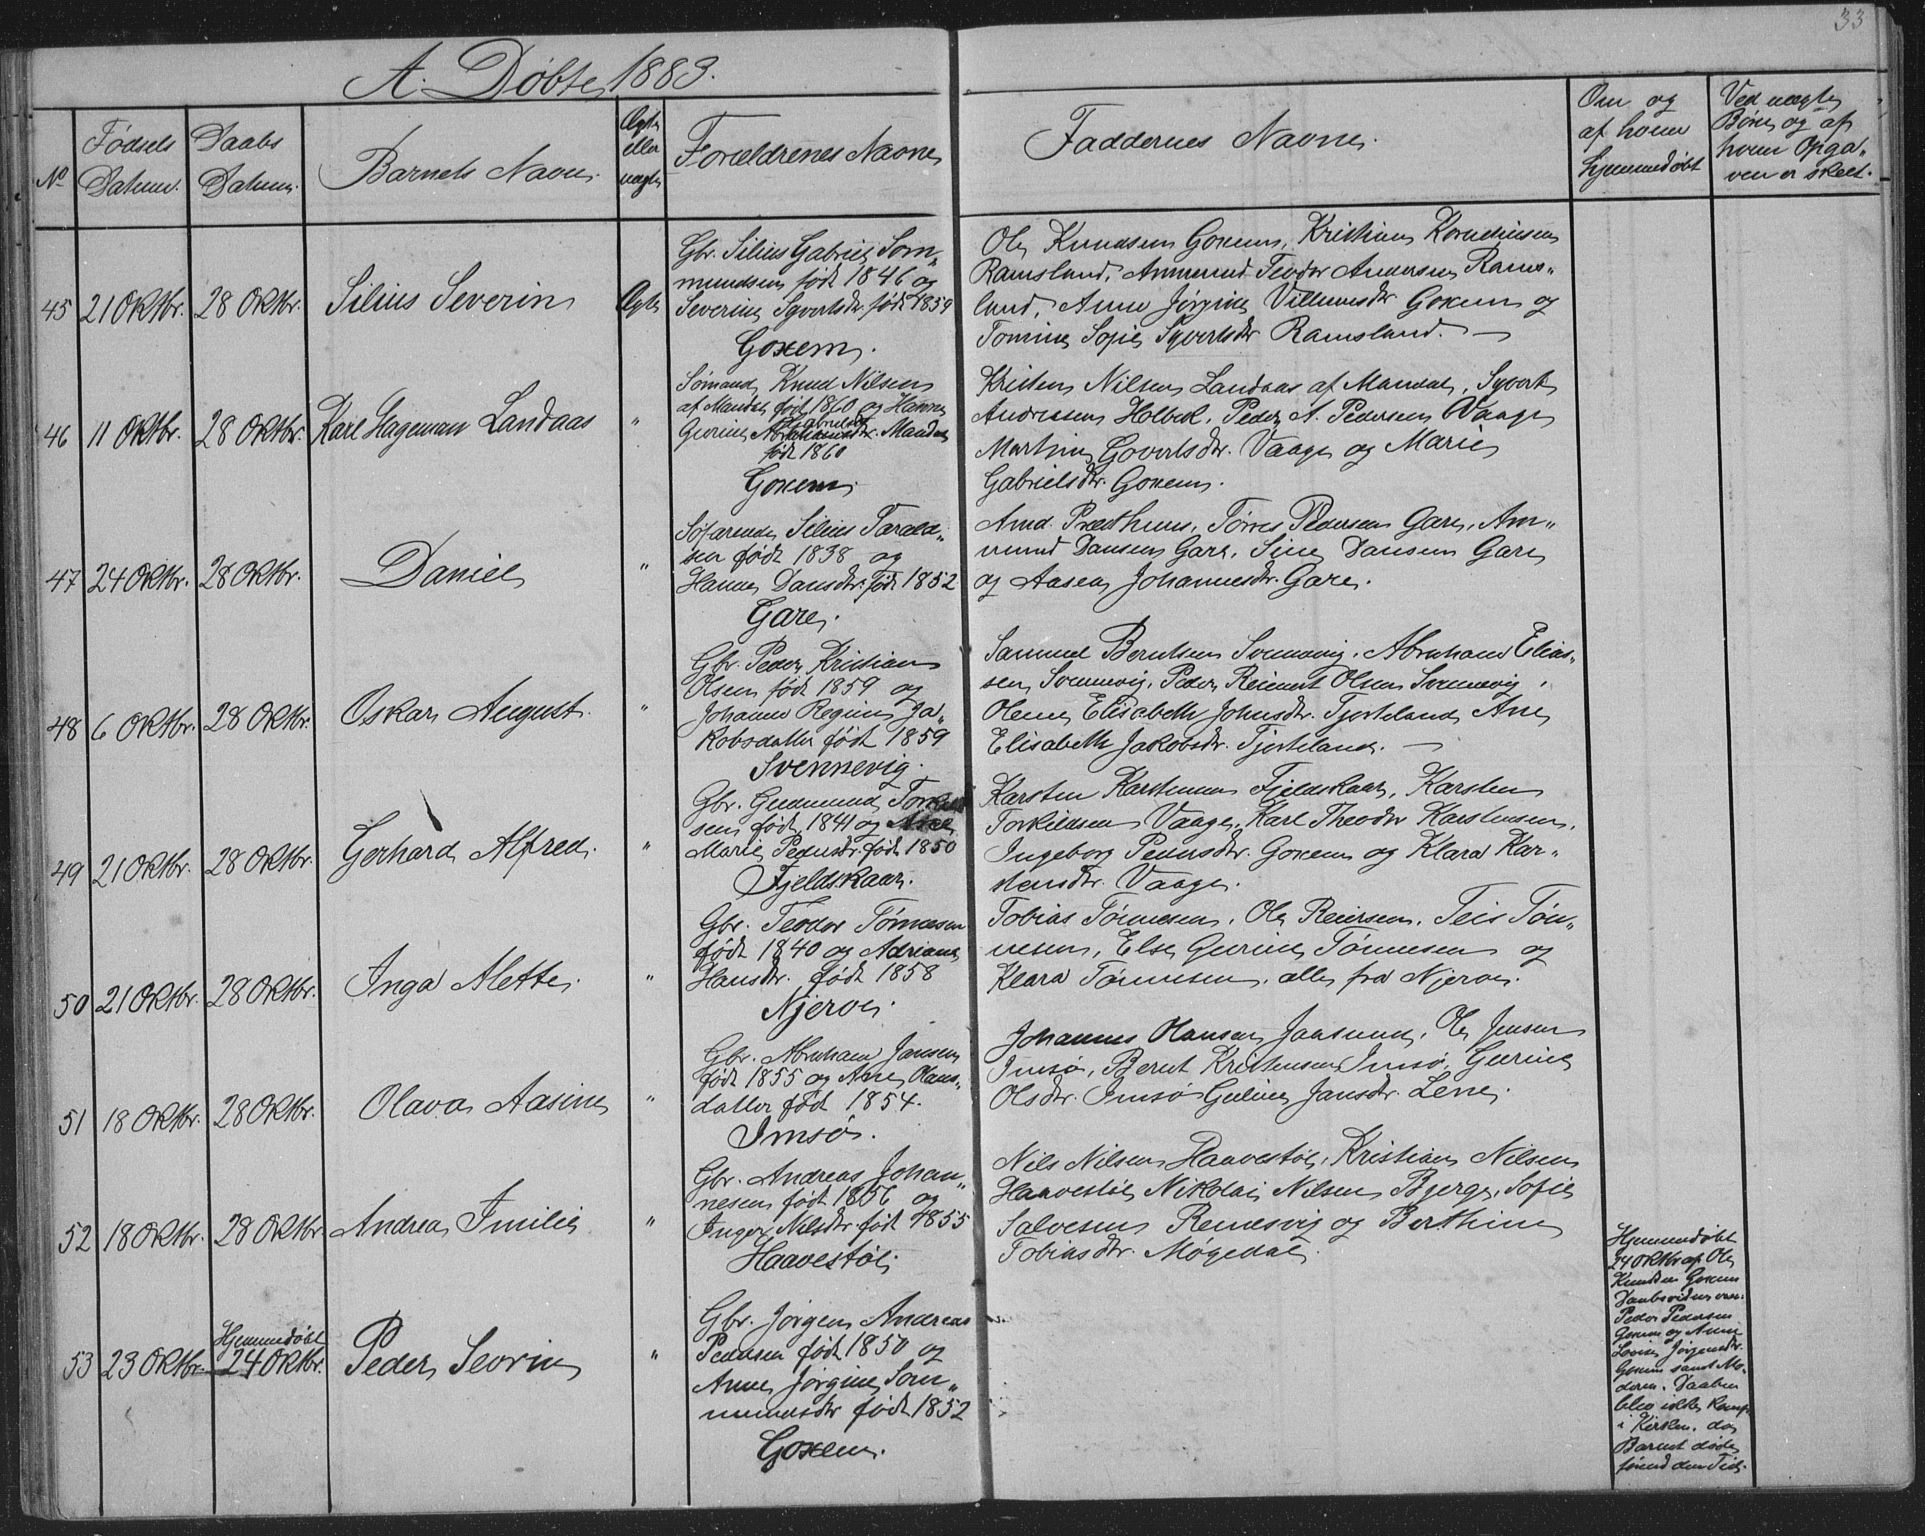 33
A. Døbte, 1883.
No
Fødsels Datum.
Daabs Datum.
Barnets Navn.
Ægte eller uægte
Forældrenes Navne
Faddernes Navne.
Om og af hvem hjemmedøbt
Ved uægte Børn, og af hvem Opga„ ven er skeet.
45
21 Oktbr.
28 Oktbr.
Silius Severin
Ægte
Gbr. Silius Gabriel Som„
mundsen født 1846 og
Severine Syvertsdtr. født 1859
Goxem.
Ole Knudsen Goxem, Kristian Kornelius
Ramsland, Teodor Andersen Rams„
land, Anne Jørgine Villumsdtr Goxem og
Tomine Sofie Syvertsdtr Ramsland. —
46
11 Oktbr.
28 Oktbr.
Karl Hageman Landaas
"
Sømand Knud Nilsen
af Mandal født 1860 og Hanne
Gurine Gabrielsdtr. Mandal
født 1860
Goxem.
Kristen Nilsen Landaas af Mandal, Syvert
Andreassen Holbek, Peder A. Pedersen Vaage
Martine Govertsdtr. Vaage og Marie
Gabrielsdtr. Goxem.
47
24 Oktbr.
28 Oktbr.
Daniel
"
Søfarende Silius Tarald„
sen født 1838 og
Hanne Dansdtr. født 1852
Gare.
Arnd. Præsthuus, Tørres Pedersen Gare, Am„
mund Dansen Gare, Sine Dansen Gare
og Aasea Johannesdtr. Gare.
48
6 Oktbr.
28 Oktbr.
Oskar August.
"
Gbr. Peder Kristian
Olsen født 1859 og
Johanne Regine Ja„
kobsdatter født 1859
Svennevig.
Samuel Berntsen Svennevig, Abraham Elias„
sen Svennevig, Peder Reinert Olsen Svennevig,
Olene Elisabeth Johnsdtr. Tjorteland, Ane
Elisabeth Jakobsdtr. Tjorteland. —
49
21 Oktbr.
28 Oktbr.
Gerhard Alfred.
"
Gbr. Gudmund Torkild
sen født 1841 og Ane
Marie Pedersdtr. født 1850
Fjeldskaar.
Karsten Karstensen Fjeldskaar, Karsten
Torkildsen Vaage, Karl Theodor Karstensen,
Ingeborg Pedersdtr. Goxem og Klara Kar„
stensdtr. Vaage.
50
21 Oktbr.
28 Oktbr.
Inga Alette.
"
Gbr. Teodor Tønnesen
født 1840 og Adriane
Hansdtr. født 1858
Njerve.
Tobias Tønnesen, Ole Reiersen, Teis Tøn„
nesen, Else Gurine Tønnesen og
Klara Tønnesen, alle fra Njerve.
51
18 Oktbr.
28 Oktbr.
Olava Aasine
"
Gbr. Abraham Jansen
født 1855 og Ane Olaus„
datter født 1854.
Imsø.
Johannes Olausen Jaasund, Ole Jensen
Imsø, Bernt Kristensen Imsø, Gurine
Olsdtr. Imsø Guline Jansdtr. Lene.
52
18 Oktbr.
28 Oktbr
Andrea Imilie
"
Gbr. Andreas Johan„
nesen født 1856 og
Inger Nilsdtr. født 1855
Haavestøl.
Nils Nilsen Haavestøl, Kristian Nilsen
Haavestøl Nikolai Nilsen Bjerge, Sofie
Salvesen Remesvig og Berthine
Tobiasdtr. Møgedal.
53
23 Oktbr.
Hjemmedøbt
24 Oktbr.
Peder Sevrin
"
Gbr. Jørgen Andreas
Pedersen født 1850 og
Anne Jørgine Som„
mundsdtr født 1852
Goxem.
Hjemmedøbt
24 Oktbr af Ole
Knudsen Goxem
Daabsvidner var:
Peder Pedersen
Goxem og Anne
Lovise Jørgensdtr.
Goxem samt Mo„
deren. Daaben
blev ikke
i Kirken, da
Barnet døde
forend den Tid.